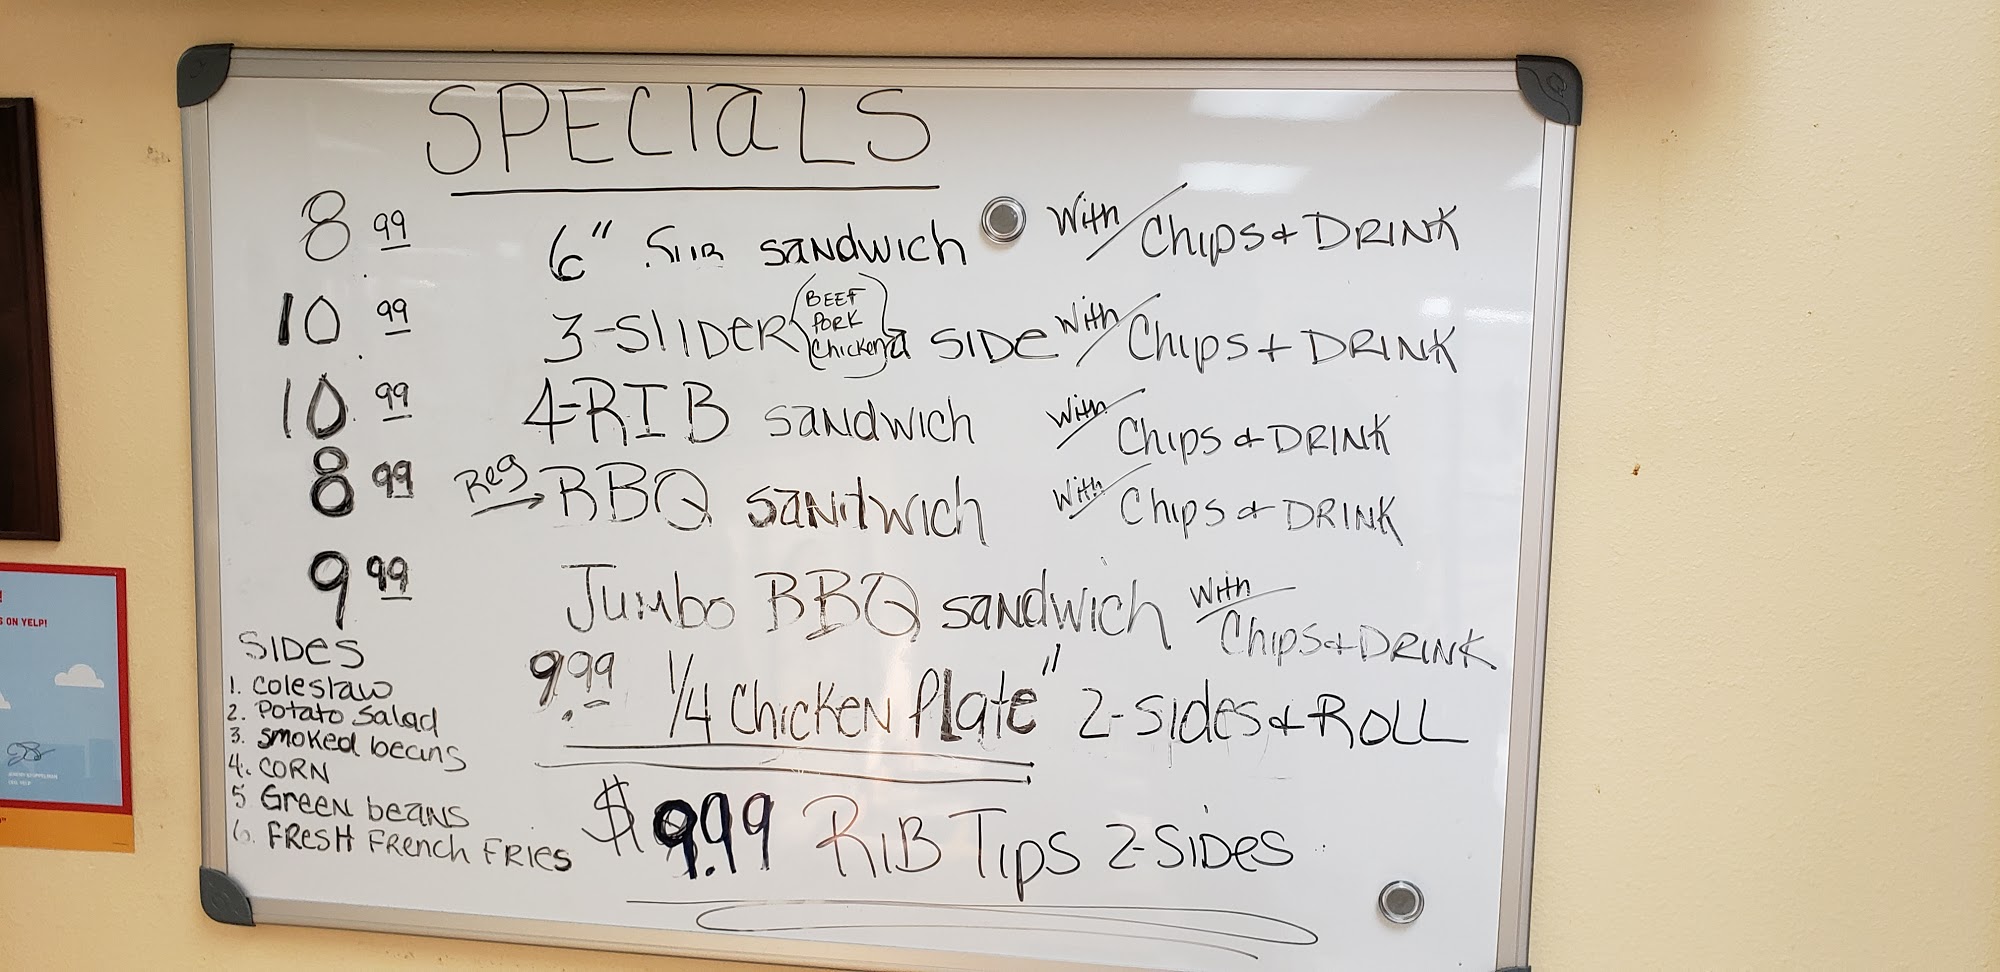 SPECIALS
8.99 6" SUB sandwich With/ Chips & DRINK
10.99 3-SLIDER (BEEF PORK Chicken) a SIDE With/ Chips + DRINK
10.99 4-RIB sandwich With/ Chips & DRINK
8.99 Reg → BBQ sandwich With/ Chips & DRINK
9.99 Jumbo BBQ sandwich With/ Chips & DRINK
9.99 1/4 Chicken Plate" 2-sides & ROLL
$9.99 RIB Tips 2-SIDES
SIDES
1. coleslaw
2. Potato Salad
3. smoked beans
4. CORN
5 Green beans
6. FRESH FRench FRies
S ON YELP!